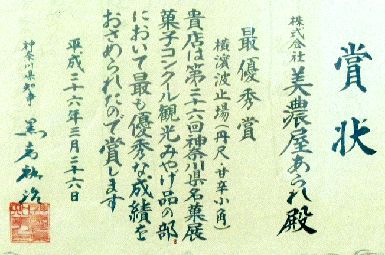 賞状
株式会社 美濃屋あられ殿
最優秀賞
横濱波止場(丹尺、甘辛小角)
貴店は第三十六回神奈川県名菓展
菓子コンクール観光みやげ品の部
において最も優秀な成績を
おさめられたので賞します
平成二十六年三月二十六日
神奈川県知事 黒岩祐治